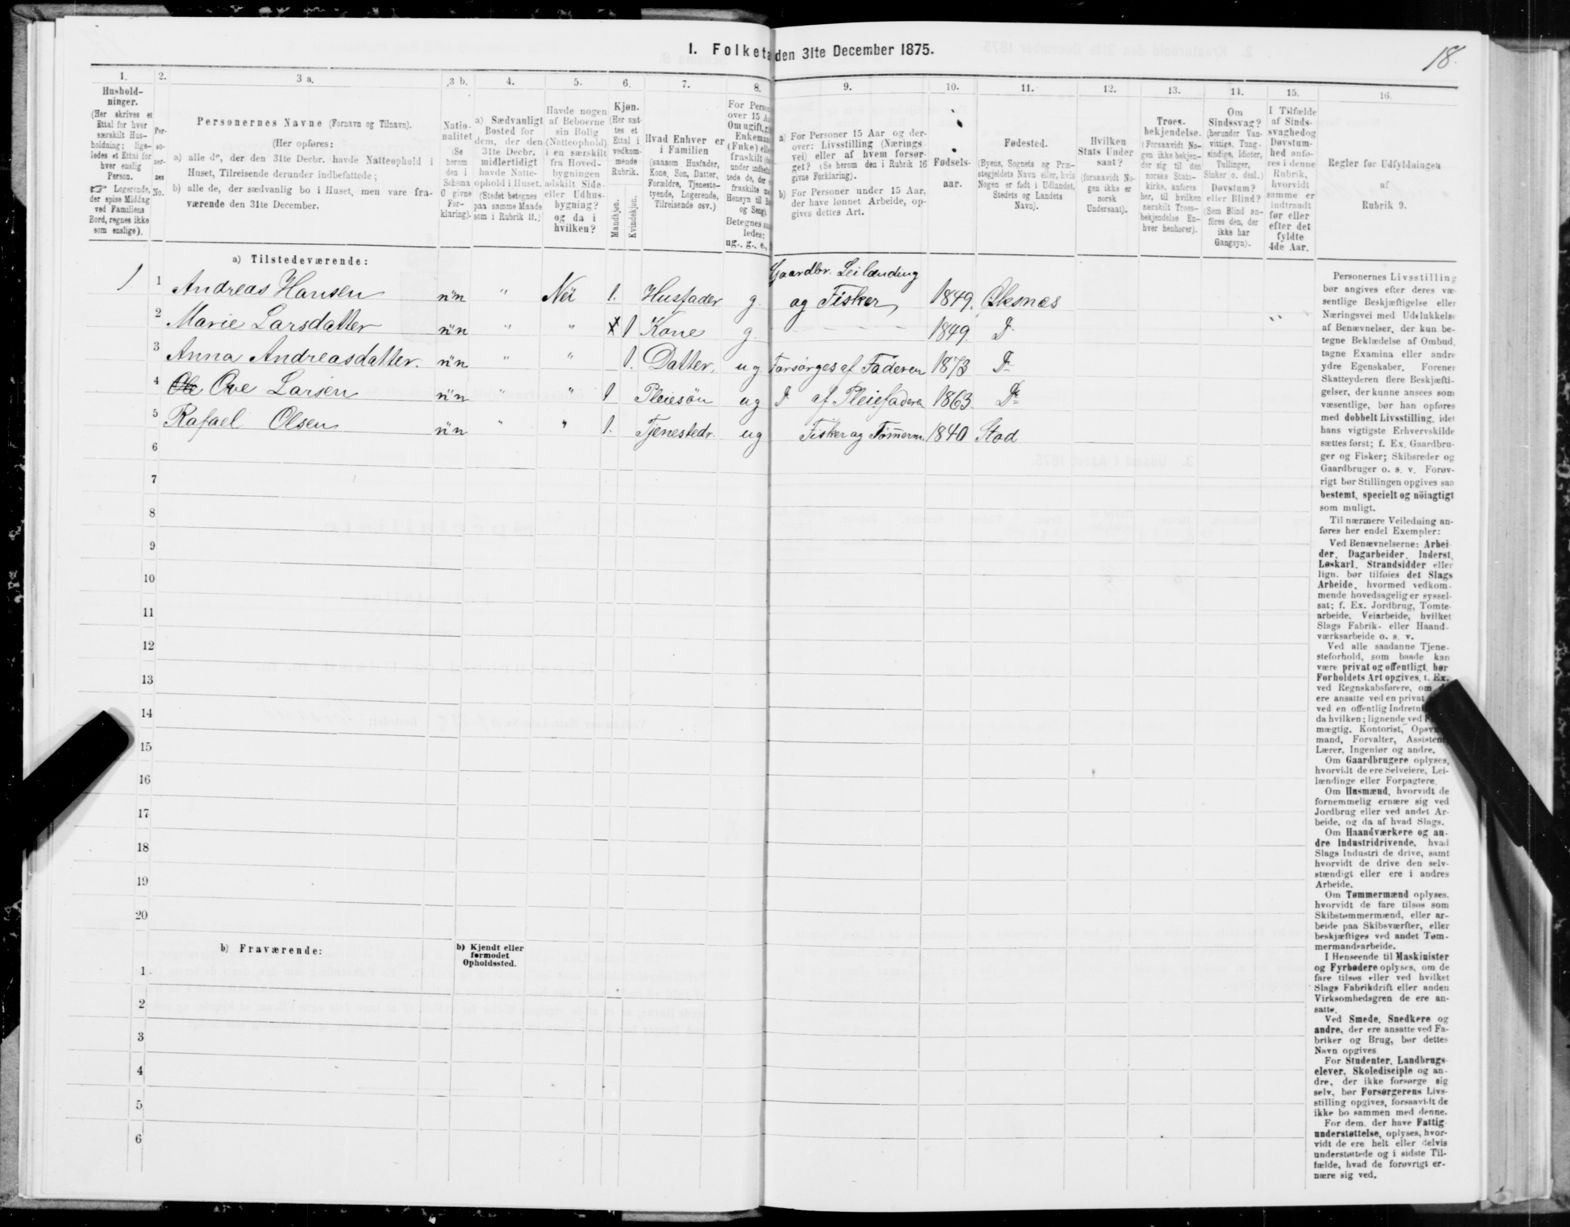 I. Folketæ den 31te December 1875.
18.
1.
2.
3 a.
3 b.
4.
5.
6.
7.
8.
9.
10.
11.
12.
13.
14.
15.
16.
Hushold-
ninger.
(Her skrives et
Ettal for hver
særskilt Hus-
holdning; lige-
ledes et Ettal for
hver enslig
Person.
Logerende,
der spise Middag
ved Familiens
Bord, regnes ikke
som enslige).
Per-
so-
ner-
nes
No.
Personernes Navne (Fornavn og Tilnavn).
(Her opføres:
a) alle de, der den 31te Decbr. havde Natteophold i
Huset, Tilreisende derunder indbefattede;
b) alle de, der sædvanlig bo i Huset, men vare fra-
værende den 31te December.
Natio-
nalitet
(Se
herom
den i
Schema
O givne
For-
klaring).
a) Sædvanligt
Bosted for
dem, der den
31te Decbr.
midlertidigt
havde Natte-
ophold i Huset.
(Stedet betegnes
paa samme Maade
som i Rubrik 11.)
Havde nogen
af Beboerne
sin Bolig
(Natteophold)
i en særskilt
fra Hoved-
bygningen
adskilt Side-
eller Udhus-
bygning?
og da i
hvilken?
Kjøn.
(Her sæt-
tes et
Ettal i
vedkom-
mende
Rubrik.
Mandkjøn.
Kvindekjøn.
Hvad Enhver er
i Familien
(saasom Husfader,
Kone, Søn, Datter,
Forældre, Tjeneste-
tyende, Logerende,
Tilreisende osv.)
For Perso
over 15 Aa
Om ugift, g
Enkeman
(Enke) elle
fraskilt
under indbefat
tede de, der
fraskilte
Hensyn til B
og Seng).
Betegnes saa
ledes:
ug., g., e.,
a) For Personer 15 Aar og der-
over: Livsstilling (Nærings-
vei) eller af hvem forsør-
get? (Se herom den i Rubrik 16
givne Forklaring).
b) For Personer under 15 Aar,
der have lønnet Arbeide, op-
gives dettes Art.
Fødsels-
aar.
Fødested.
(Byens, Sognets og Præ-
stegjeldets Navn eller, hvis
Nogen er født i Udlandet,
Stedets og Landets
Navn).
Hvilken
Stats Under
saat?
(forsaavidt No-
gen ikke er
norsk
Undersaat).
Troes-
bekjendelse.
(Forsaavidt No-
gen ikke bekjen-
der sig til den
norske Stats-
kirke, anføres
her, til hvilken
særskilt Troes-
bekjendelse En-
hver henhører).
Om
Sindssvag?
(herunder Van-
vittige, Tung-
sindige, Idioter,
Tullinger,
Sinker o. desl.)
Døvstum?
eller Blind?
(Som Blind an-
føres den, der
ikke har
Gangsyn).
I Tilfælde
af Sinds-
svaghed og
Døvstum-
hed anfø-
res i denne
Rubrik,
hvorvidt
samme er
indtraadt
før eller
efter det
fyldte
4de Aar.
Regler for Udfyldningen
af
Rubrik 9.
a) Tilstedeværende:
Gaardbr. Leilænding
1 1 Andreas Hansen n'n " Nei 1. Husfader g. og Fisker, 1849. Øksnes
2 Marie Larsdatter n'n " " 1 Kone g. 1849. Do
3 Anna Andreasdatter. n'n " " 1. Datter. ug Forsørges af Faderen 1873 Do
4 Ole Ove Larsen n'n " " 1 Pleiesøn ug Do af Pleiefaderen 1863. Do
5 Rafael Olsen n'n " " 1. Tjenestedr. ug Fisker og Tømmerm. 1840 Stod
6
7
8
9
10
11
12
13
14
15
16
17
18
19
20
b) Fraværende:
b) Kjendt eller
formodet
Opholdssted.
1
2
3
4
5
6
Personernes Livsstilling
bør angives efter deres væ-
sentlige Beskjæftigelse eller
Næringsvei med Udelukkelse
af Benævnelser, der kun be-
tegne Beklædelse af Ombud,
tagne Examina eller andre
ydre Egenskaber. Forener
Skatteyderen flere Beskjæfti-
gelser, der kunne ansees som
væsentlige, bør han opføres
med dobbelt Livsstilling, idet
hans vigtigste Erhvervskilde
sættes først; f. Ex. Gaardbru-
ger og Fisker; Skibsreder og
Gaardbruger o. s. v. Forøv-
rigt bør Stillingen opgives saa
bestemt, specielt og nöiagtigt
som muligt.
Til nærmere Veiledning an-
føres her endel Exempler:
Ved Benævnelserne: Arbei-
der, Dagarbeider, Inderst,
Løskarl, Strandsidder eller
lign. bør tilføies det Slags
Arbeide, hvormed vedkom-
mende hovedsagelig er syssel-
sat; f. Ex. Jordbrug, Tomte-
arbeide, Veiarbeide, hvilket
Slags Fabrik- eller Haand-
værksarbeide o. s. v.
Ved alle saadanne Tjene-
steforhold, som baade kan
være privat og offentligt, bør
Forholdets Art opgives, f. Ex.
ved Regnskabsførere, om
ere ansatte ved en privat
ved en offentlig Indretn
da hvilken; lignende ved
mægtig, Kontorist, Opsyns
mand, Forvalter, Assistent,
Lærer, Ingeniør og andre.
Om Gaardbrugere oplyses,
hvorvidt de ere Selveiere, Lei-
lændinge eller Forpagtere.
Om Husmænd, hvorvidt de
fornemmelig ernære sig ved
Jordbrug eller ved andet Ar-
beide, og da af hvad Slags.
Om Haandværkere og an-
dre Industridrivende, hvad
Slags Industri de drive, samt
hvorvidt de drive den selv-
stændigt eller ere i andres
Arbeide.
Om Tømmermænd oplyses,
hvorvidt de fare tilsøs som
Skibstømmermænd, eller ar-
beide paa Skibsværfter, eller
beskjæftiges ved andet Tøm-
mermandsarbeide.
I Henseende til Maskinister
og Fyrbødere oplyses, om de
fare tilsøs eller ved hvilket
Slags Fabrikdrift eller anden
Virksomhedsgren de ere an-
satte.
Ved Smede, Snedkere og
andre, der ere ansatte ved Fa-
briker og Brug, bør dettes
Navn opgives
For Studenter, Landbrugs-
elever, Skoledisciple og an-
dre, der ikke forsørge sig
selv, bør Forsørgerens Livs-
stilling opgives, forsaavidt de
ikke bo sammen med denne.
For dem, der have Fattig-
understøttelse, oplyses, hvor-
vidt de ere helt eller delvis
understøttede og i sidste Til-
fælde, hvad de forøvrigt er-
nære sig ved.